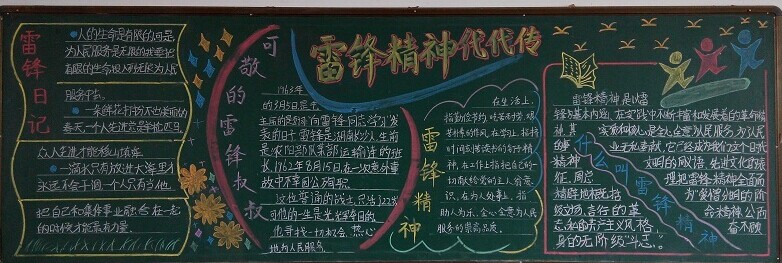 雷锋精神代代传
雷锋日记
人的生命是有限的可是
为人民服务是无限的我要把
有限的生命投入到无限为人民
服务中去
一朵鲜花打扮不出美丽的
春天,一个人先进总是单枪匹马
众人先进才能移山填海
一滴水只有放进大海里才
永远不会干涸,一个人只有当他
把自己和集体事业融合在一起
的时候才能最有力量
可敬的雷锋叔叔
1963年
的3月5日是毛
主席的题词“向雷锋同志学习”发
表的日子雷锋是湖南
1962年8月15日在一次意外事
故中不幸因公殉职
这位普通的战士,只活了22岁
可他的一生是光辉
他寻找一切机会,热心
地为人民服务
雷锋精神
在生活上,
指勤俭节约,吃苦耐劳,艰
苦朴素的作风,在学习上,指挤
时间刻苦读书的钉子精
神,在工作上指把自己的一
切献给党的主人翁意
识,在为人处事上,指
助人为乐,全心全意为人民
服务的崇高品质。
什么叫雷锋精神
雷锋精神是以雷
锋
基本内涵,在实践中不断丰富和发展着的革命精
神,其
实质和核心是全心全意为人民服务,为人民
事业无私奉献,它已经成为我们这个时代
精神
文明的
先进文化的表
征。周总
理把雷锋精神全面而
精辟地概括
为“爱憎分明的阶
级立场、言行
的革
命精神、公
而忘私的共产主义风格、
奋不顾
身的无
阶级斗志”。